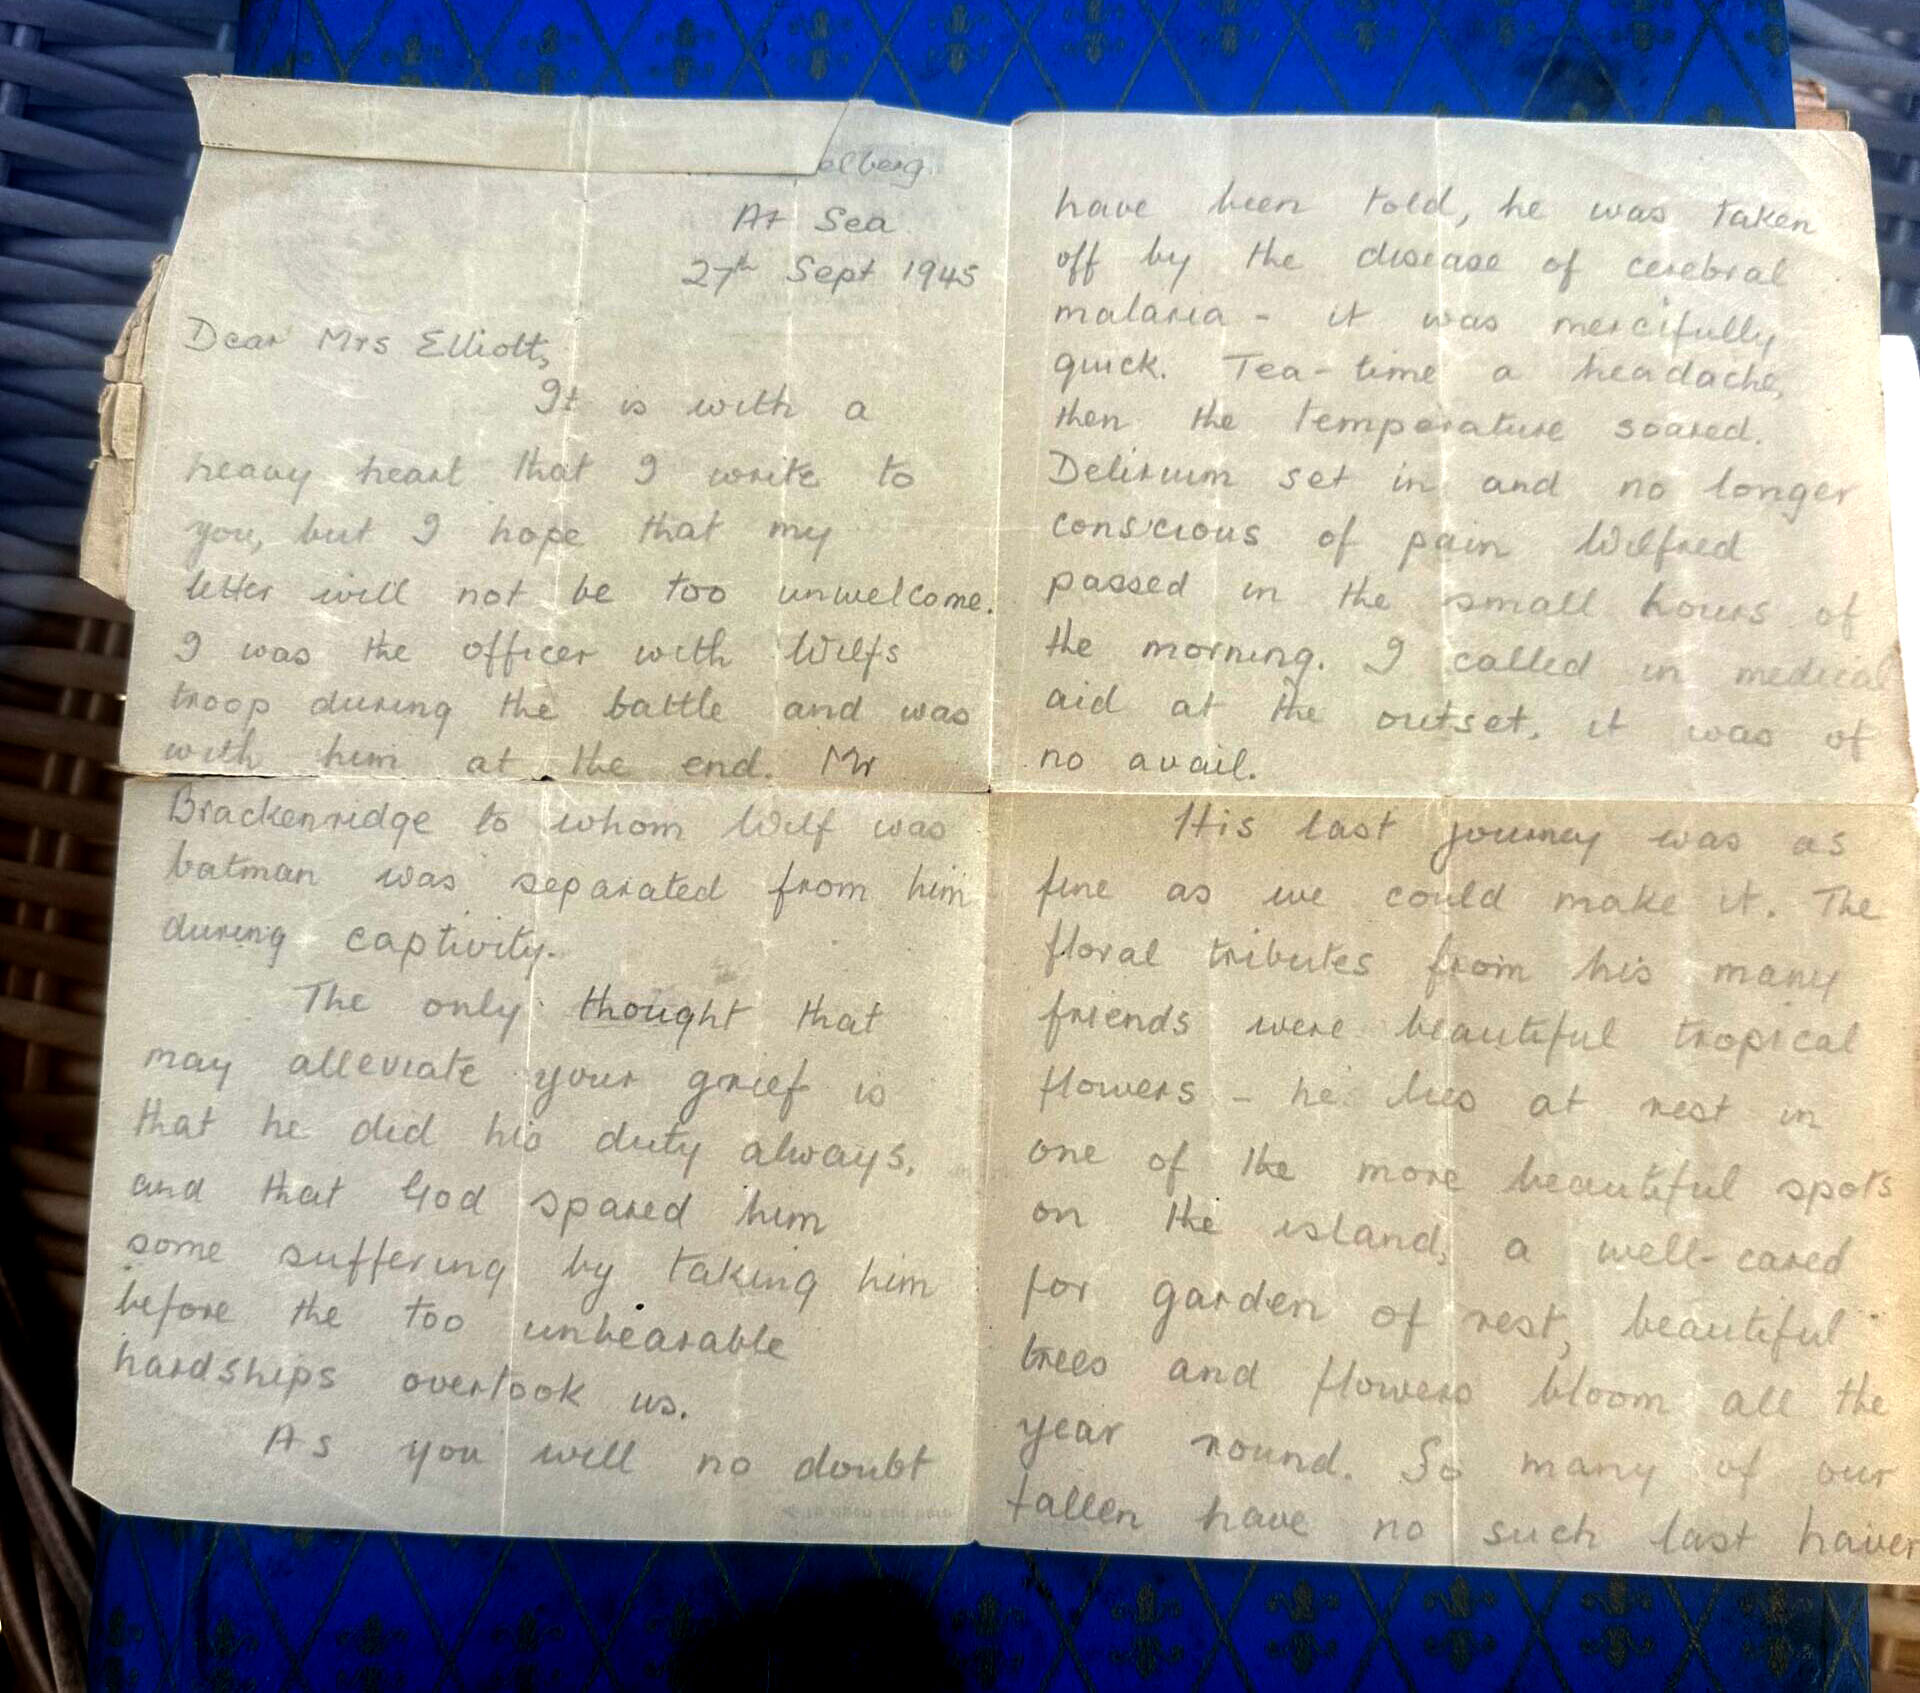 elberg.
At Sea.
27th Sept 1945
Dear Mrs Elliott,
It is with a
heavy heart that I write to
you, but I hope that my
letter will not be too unwelcome.
I was the officer with Wilfs
troop during the battle and was
with him at the end. Mr
Brackenridge to whom Wilf was
batman was separated from him
during captivity.
The only thought that
may alleviate your grief is
that he did his duty always,
and that God spared him
some suffering by taking him
before the too unbearable
hardships overtook us.
As you will no doubt
have been told, he was taken
off by the disease of cerebral
malaria - it was mercifully
quick. Tea-time a headache,
then the temperature soared.
Delirium set in and no longer
conscious of pain Wilfred
passed in the small hours of
the morning. I called in medical
aid at the outset, it was of
no avail.
His last journey was as
fine as we could make it. The
floral tributes from his many
friends were beautiful tropical
flowers - he lies at rest in
one of the more beautiful spots
on the island, a well-cared
for garden of rest, beautiful
trees and flowers bloom all the
year round. So many of our
fallen have no such last haven